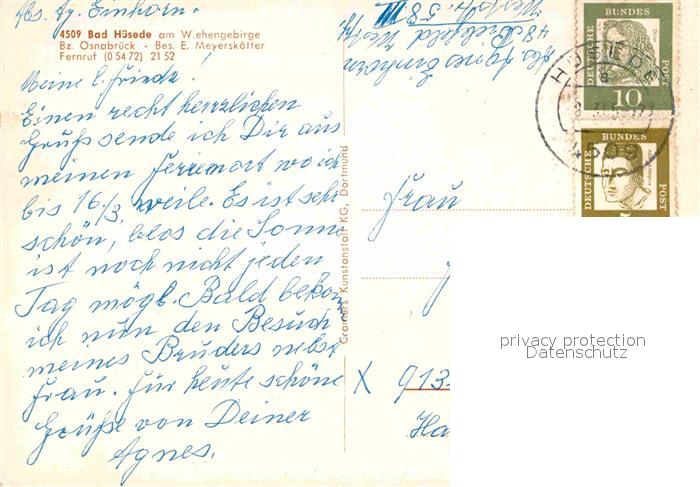 Abs. Ag. Einhorn.
4509 Bad Hüsede am Wiehengebirge
Bz. Osnabrück · Bes. E. Meyerskötter
Fernruf (0 54 72) 21 52
Meine l. Friedr.!
Einen recht herzlichen
Gruß sende ich Dir aus
meinen Ferienort wo ich
bis 16./3. weile. Es ist sehr
schön, blos die Sonne
ist noch nicht jeden
Tag mögl. Bald bekom
ich nun den Besuch
meines Bruders nebst
Frau. Für heute schöne
Grüße von Deiner
Agnes.
Cramers Kunstanstalt KG, Dortmund
Einhorn
48 Bielefeld
III
58
DEUTSCHE
BUNDES
POST
10
HÜSEDE
4509
DEUTSCHE
BUNDES
POST
Frau
X 913
Ha
privacy protection
Datenschutz